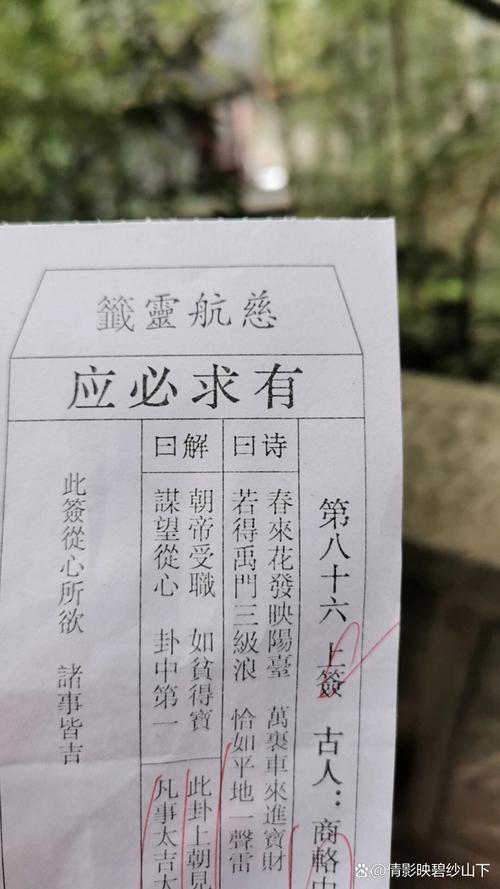 慈航靈籤
有求必应
第八十六 上簽 古人：商輅
诗曰
春來花發映陽臺 萬裏車來進寶財
若得禹門三級浪 恰如平地一聲雷
解曰
朝帝受職 如貧得寶
謀望從心 卦中第一
此卦上朝見
凡事太吉大
此簽從心所欲 諸事皆吉
@倩影映碧纱山下